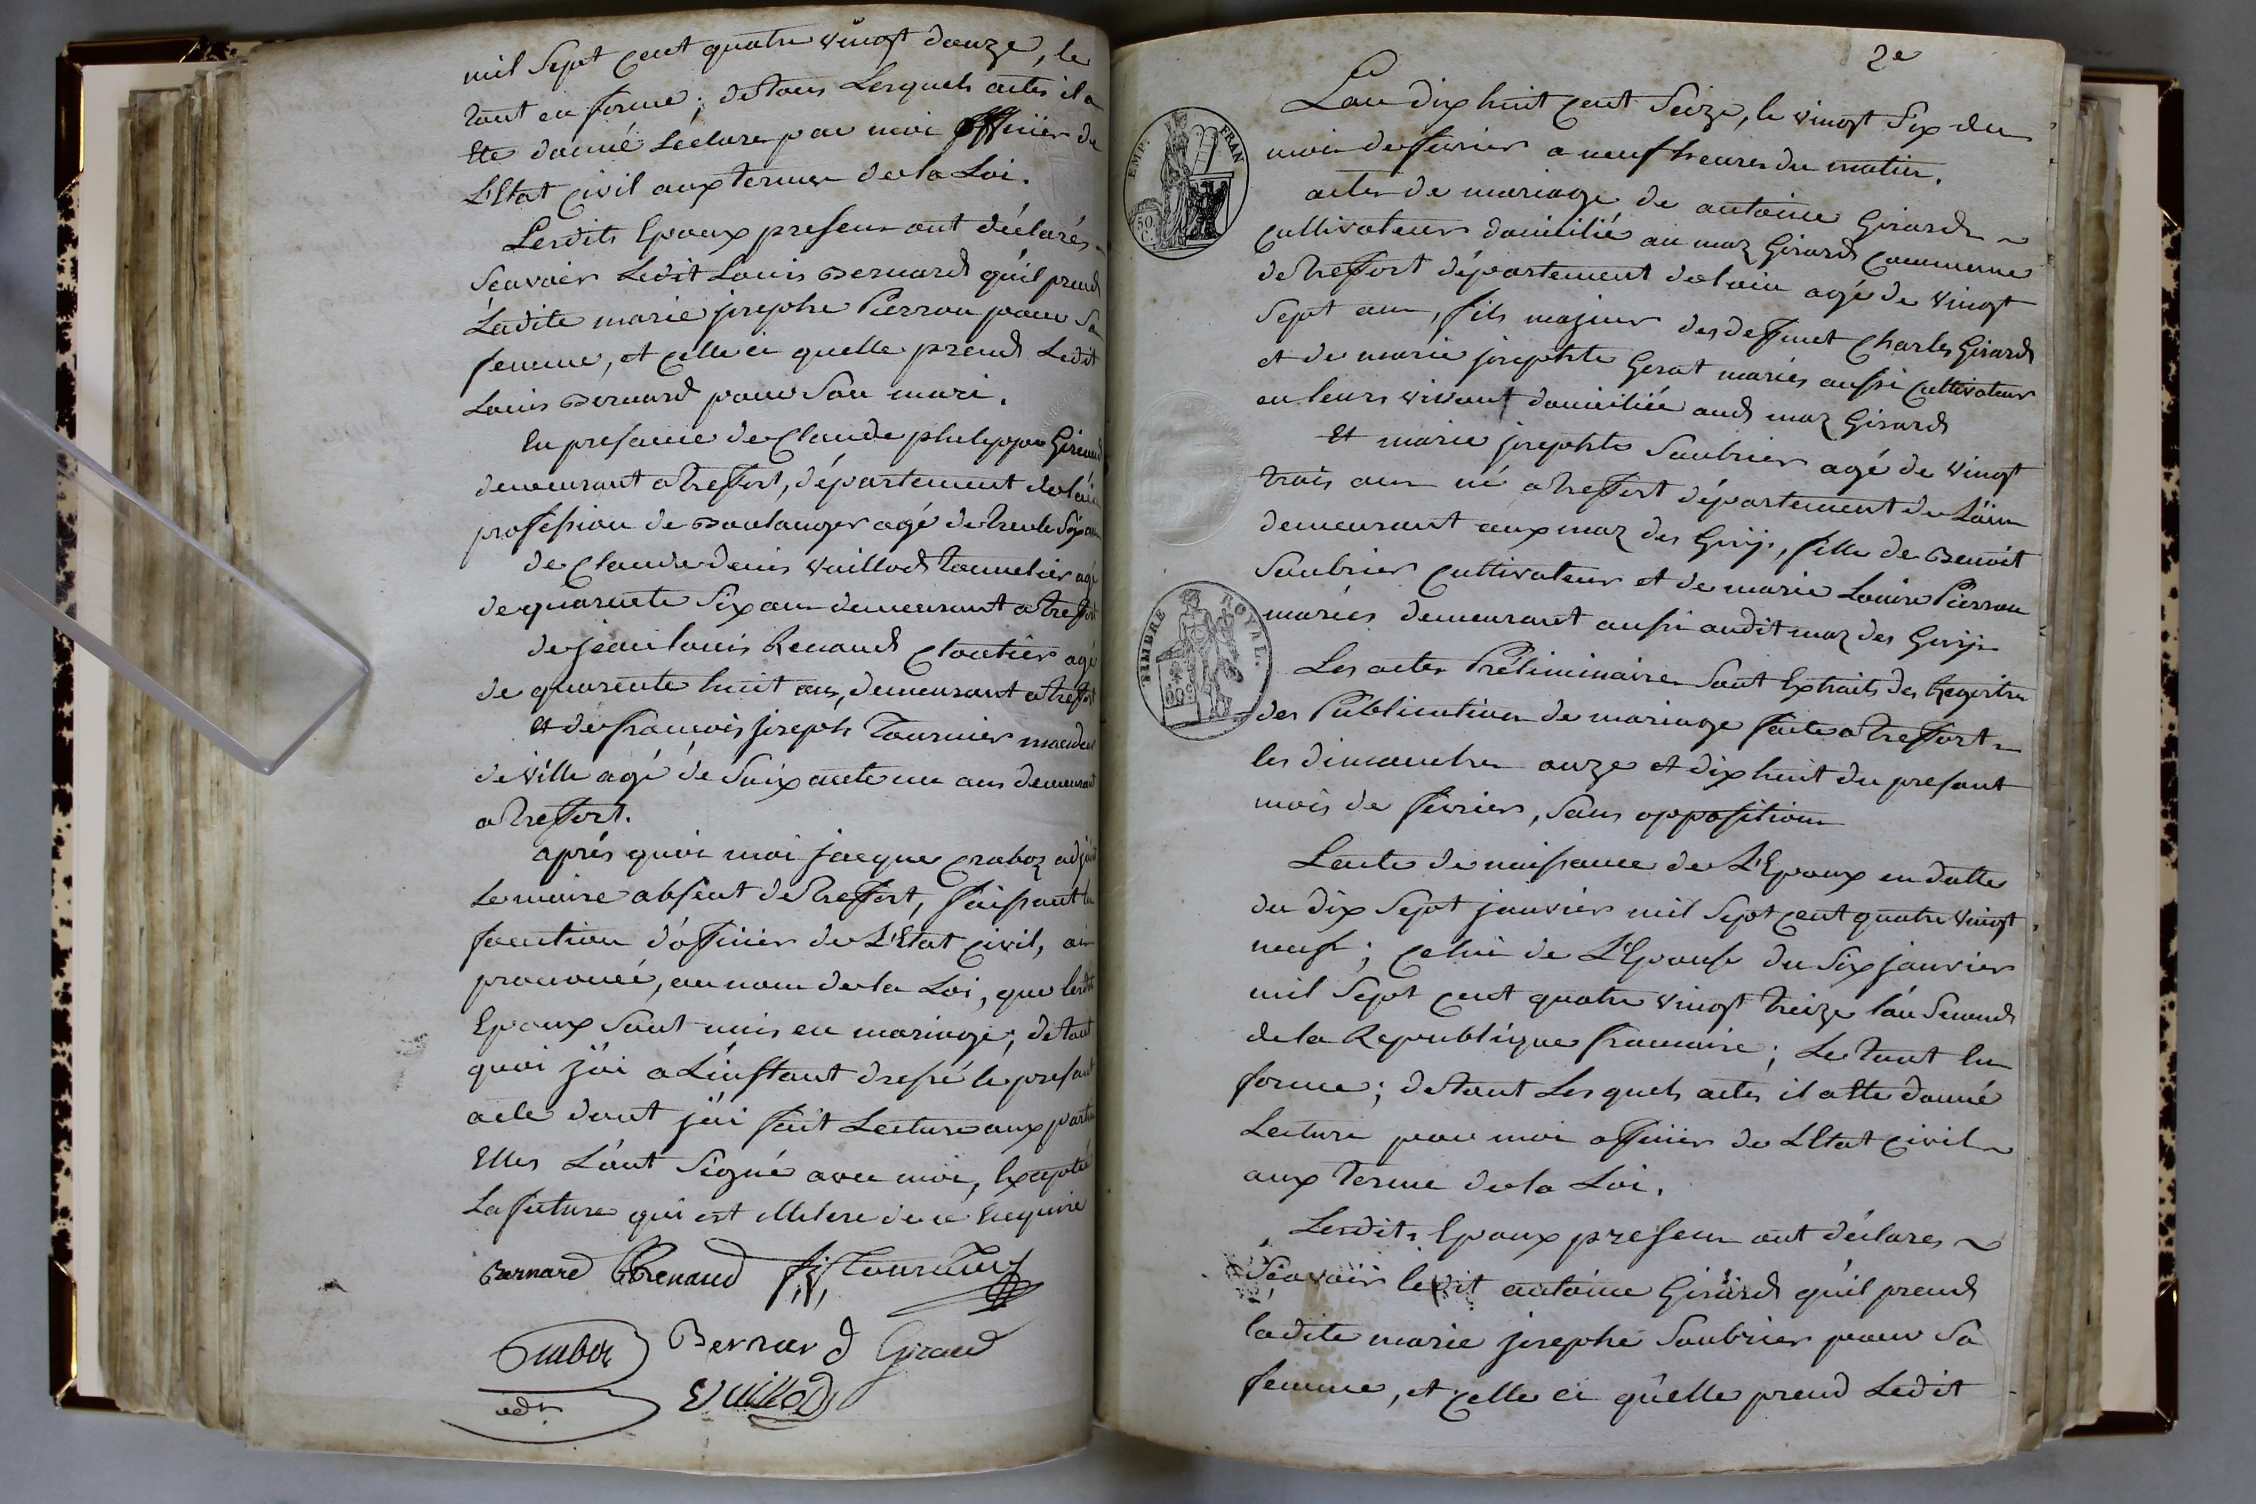 mil Sept Cent quatre vingt douze, le
tout en forme; de tous Lesquels actes il a
Ete donné Lécture par moi officier de
L'Etat Civil aux termes de la Loi.
Lesdits Epoux presens ont déclarés
Scavoir Ledit Louis Bernard qu'il prend
Ladite marie josephe Pierron pour Sa
femme, et Celle ci quelle prend Ledit
Louis Bernard pour Son mari.
En presance de Claude philippe Giraud
demeurant a Treffort, département de lain
profession de Boulanger agé de trente Six ans
de Claude denis Vuillod Tonnelier agé
de quarante Six ans demeurant a Treffort
de jean louis Renaud Cloutier agé
de quarante huit ans, demeurant a Treffort
Et de francois joseph Tournier
de ville agé de Soixante un ans demeurant
a Treffort.
après quoi moi jacque Craboz adjoint
Le maire absent de Treffort, faisant la
fonction d'officier de L'Etat Civil, ai
prononcé, au nom de la Loi, que lesdits
Epoux Sont unis en mariage; de tout
quoi j'ai a L'instant dressé le presant
acte dont j'ai fait Lecture aux parties
Elles L'ont Signé avec moi, Exepté
La future qui est illitere de ce Enquise
Bernard Renaud f,j, Tournier
Craboz Bernard Giraud
adt Vuillod
2e
EMP. FRAN
50 C.
TIMBRE ROYAL.
50c
Lan dix huit Cent Seize, le vingt Six du
mois de fevrier a neuf heures du matin.
acte de mariage de antoine Girard
Cultivateur domicilié au maz Girard Commune
de Treffort département de lain agé de vingt
Sept ans, fils majeur des deffunt Charles Girard
et de marie josephte Gerat mariés aussi Cultivateur
en leurs vivant domiciliée aud maz Girard
Et marie josephte Saubrier agé de vingt
trois ans né a Treffort département de Lain
demeurant aux maz des, fille de Benoit
Saubrier Cultivateur et de marie Louise Pierron
mariés demeurant aussi audit maz des
Les actes Préliminaires Sont Extraits des Registres
des Publications de mariage faite a Treffort
les dimanches onze et dix huit du presant
mois de fevrier, Sans opposition
Lacte de naissance de L'Epoux en datte
du dix Sept janvier mil Sept Cent quatre vingt
neuf; Celui de L'Epouse du Six janvier
mil Sept Cent quatre vingt treize l'an Second
de la Republique francaise; Le tout En
forme; de tout Lesquels actes il a Ete donné
Lecture par moi officier de L'Etat Civil
aux Terme de la Loi.
Lesdits Epoux presens ont déclares
Scavoir ledit antoine Girard qu'il prend
ladite marie josephe Saubrier pour Sa
femme, et Celle ci qu'elle prend Ledit